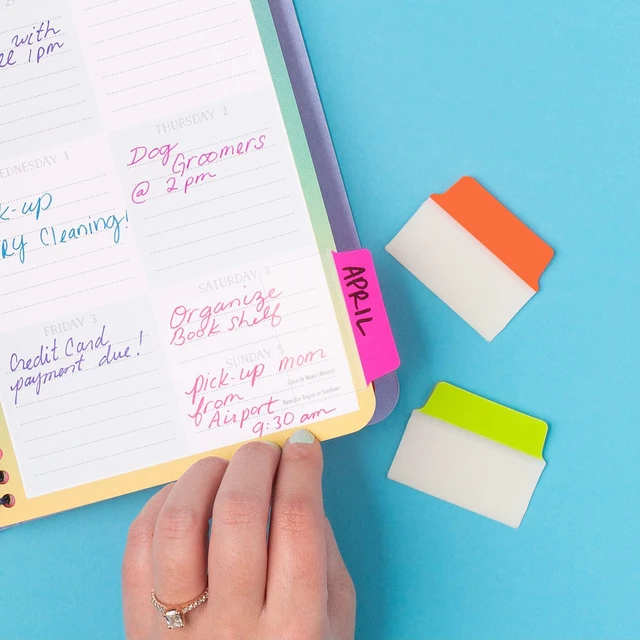 with
1pm
THURSDAY 2
Dog
Groomers
@ 2pm
WEDNESDAY 1
k-up
RY Cleaning!
SATURDAY 4
Organize
Book shelf
APRIL
FRIDAY 3
Credit Card
payment due!
SUNDAY 5
pick-up mom
Cinco de Mayo (Mexico)
from
Ramadan Begins at Sundown
Airport
9:30 am